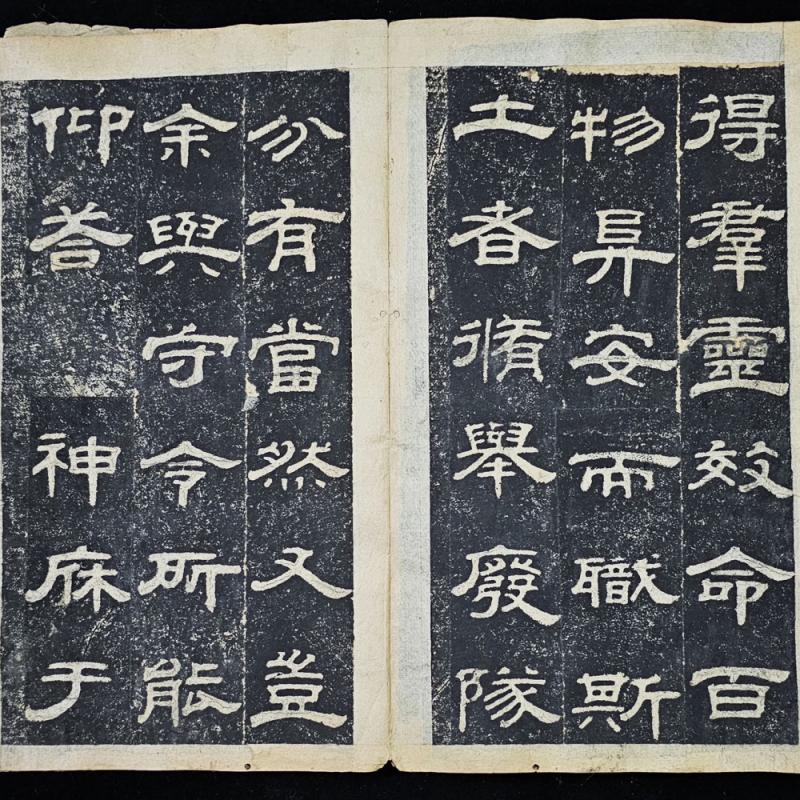 得羣靈效命百
物阜安而職斯
土者脩舉廢隊
分有當然又豈
余與守令所能
仰荅　神庥于